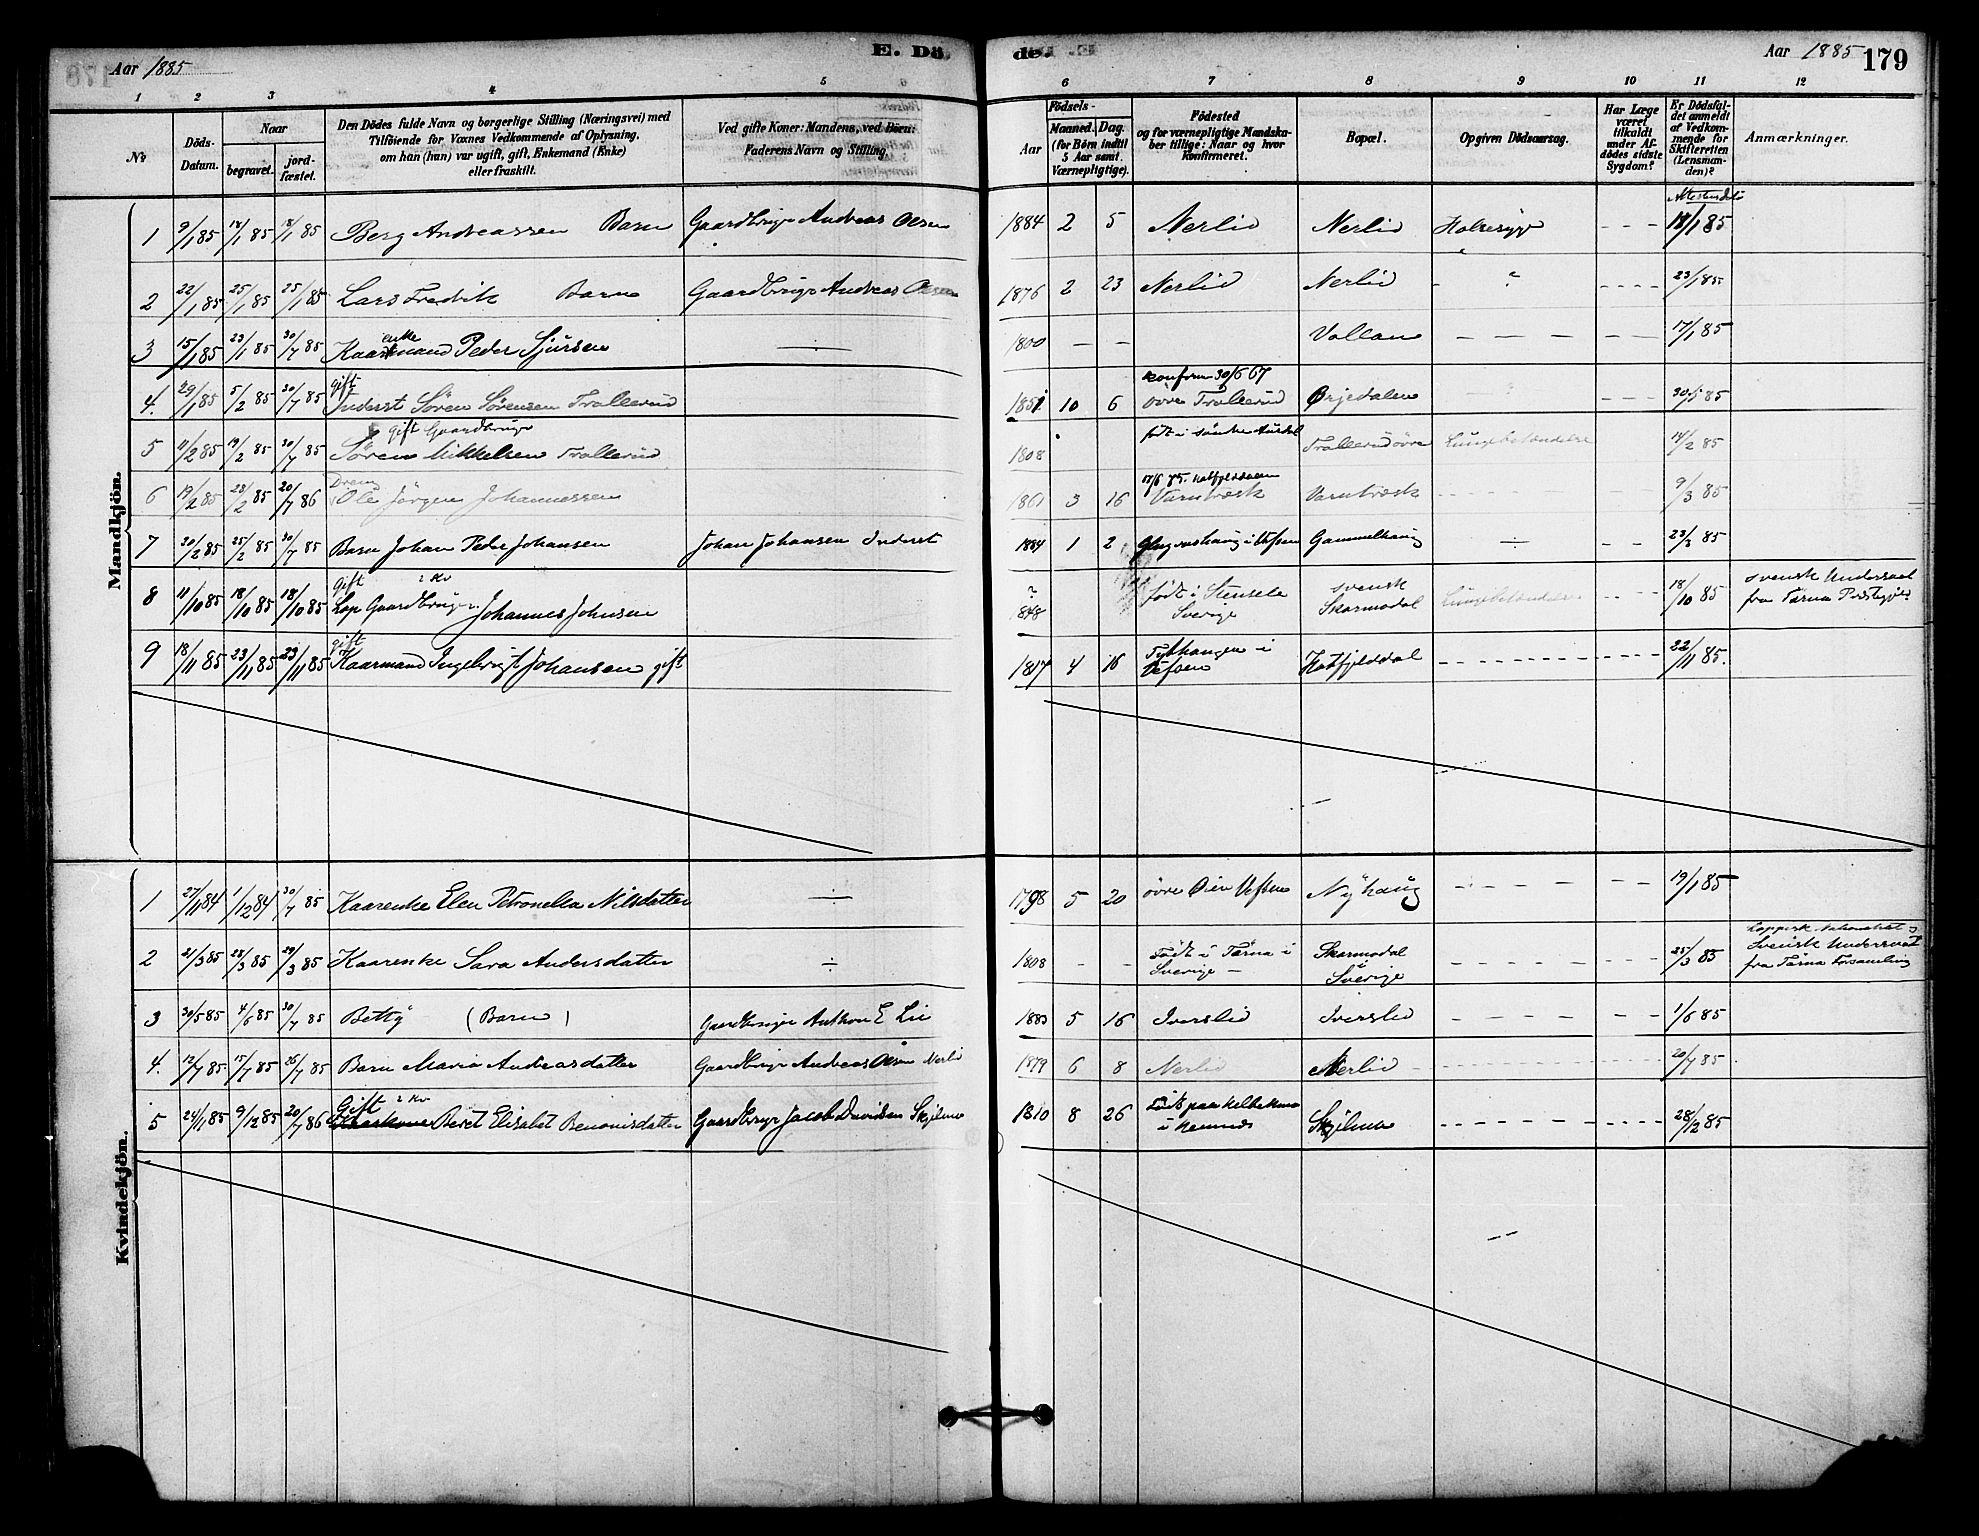 Aar 1885
E. Döde.
Aar 1885 179
1 2 3 4 5 6 7 8 9 10 11 12
No
Döds-Datum.
Naar
begravet.
jord-fæstet.
Den Dödes fulde Navn og borgerlige Stilling (Næringsvei) med
Tilföiende for Voxnes Vedkommende af Oplysning,
om han (hun) var ugift, gift, Enkemand (Enke)
eller fraskilt.
Ved gifte Koner: Mandens, ved Börn:
Faderens Navn og Stilling.
Födsels-
Aar
Maaned. Dag.
(for Börn indtil
5 Aar samt
Værnepligtige).
Födested
og for værnepligtige Mandska-
ber tillige: Naar og hvor
konfirmeret.
Bopæl.
Opgiven Dödsaarsag.
Har Læge
været
tilkaldt
under Af-
dödes sidste
Sygdom?
Er Dödsfal-
det anmeldt
af Vedkom-
mende for
Skifteretten
(Lensman-
den)?
Anmærkninger.
Mandkjön.
1 9/1 85 18/1 85 18/1 85 Berg Andreassen Barn Gaardbruger Andreas Olsen 1884 2 5 Nerlid Nerlid Halsesyge - - - 18/1 85
2 22/1 85 25/1 85 25/1 85 Lars Fredrik Barn Gaardbruger Andreas Olsen 1876 2 23 Nerlid Nerlid - - - - 23/1 85
enke
3 15/1 85 23/1 85 30/7 85 Kaarmand Peder Sjursen ÷ 1800 - - Vollan - - - - - - 17/1 85
gift konfirm 30/6 67
4. 29/1 85 5/2 85 30/7 85 Inderst Sören Sörensen Trallerud 1851 10 6 övre Trallerud Ørjedalen - - - 85
gift Gaardbruger födt i söndre Aurdal
5 11/2 85 19/2 85 30/7 85 Sören Mikkelsen Trallerud 1808 Trallerud övre Lungebetændelse 14/2 85
Dreng 17/6 75. Hatfjelddalen
6 19/2 85 28/2 85 20/7 86 Ole Jörgen Johannessen 1861 3 16 Varntræsk Varntræsk - - - - 9/3 85
7 20/2 85 25/2 85 30/7 85 Barn Johan Peder Johansen Johan Johansen Inderst 1884 1 2 i Vefsen Gammelhaug ÷ - - 23/3 85
gift 2 Kv
8 11/10 85 18/10 85 18/10 85 Lap Gaardbruger Johannes Johnsen ? 848 födt i Stensele Sverige svensk Skarmodal Lungebetændelse - - 18/10 85 svensk Undersaat
fra Tärna Præstegjeld
gift
9 18/11 85 23/11 85 23/11 85 Kaarmand Ingebrigt Johansen gift 1817 4 16 i Vefsen Hatfjelddal - - - - - - 22/11 85.
Kvindekjön.
1 27/11 84 1/12 84 30/7 85 Kaarenke Elen Petronella Nilsdatter ÷ 1798 5 20 övre Øien Vefsen Nyhaug - - - - - 19/1 85
2 21/3 85 28/3 85 29/3 85 Kaarenke Sara Andersdatter ÷ 1808 - - Födt i Tärna i
Sverige - Skarmodal
i
Sverige - - - - - - 25/3 85 Lappisk Nationalitet og
Svensk Undersaat
fra Tärna Forsamling
3 30/5 85 4/6 85 30/7 85 Betty (Barn) Gaardbruger Anthon E Lie 1883 5 16 Iverslid Iverslid - - - - - - 1/6 85
4. 12/7 85 15/7 85 26/7 85 Barn Maria Andreasdatter Gaardbruger Andreas Olsen Nerlid 1879 6 8 Nerlid Nerlid - - - - - - 20/7 85
Gift 2 Kv
5 24/11 85 9/12 85 20/7 86 Beret Elisabet Benonisdatter Gaardbruger Jacob Davidsen Skjelmo 1810 8 26 Födt paa
i Hemnes Skjelmo - - - - - - 28/12 85